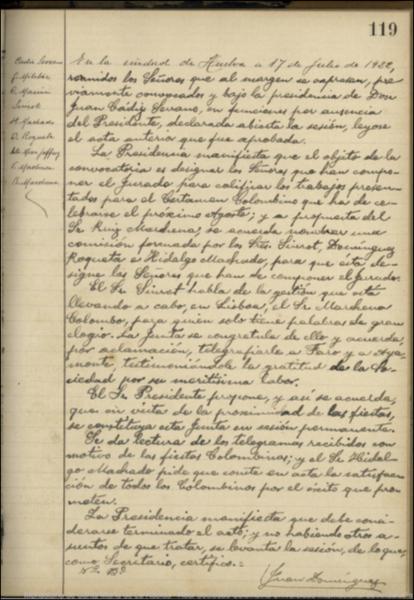 119
Cádiz Serrano
H. Machado
D. Roqueta
T. Marchena
B. Marchena
En la ciudad de Huelva a 17 de Julio de 1922,
reunidos los Señores que al margen se expresan, pre
viamente convocados y bajo la presidencia de Don
Juan Cádiz Serrano, en funciones por ausencia
del Presidente, declarada abierta la sesión, leyose
el acta anterior que fue aprobada.
La Presidencia manifiesta que el objeto de la
convocatoria es designar los Señores que han compo-
ner el Jurado para calificar los trabajos presen-
tados para el Certamen Colombino que ha de ce-
lebrarse el próximo Agosto; y a propuesta del
Sr Ruiz Marchena, se acuerda nombrar una
comisión formada por los Srs. Siurot, Dominguez
Roqueta e Hidalgo Machado, para que esta de-
signe las Señores que han de componer el Jurado.
El Sr Siurot habla de la gestión que está
llevando a cabo, en Lisboa, el Sr Marchena
Colombo, para quién solo tiene palabras de gran
elogio. La Junta se congratula de ello y acuerda,
por aclamación, telegrafiarle a Faro y a Aya-
monte, testimoniándole la gratitud de la So-
ciedad por su meritísima labor.
El Sr Presidente propone, y así se acuerda,
que en vista de la proximidad de las fiestas,
se constituya esta Junta en sesión permanente.
Se da lectura de los telegramas recibidos con
motivo de las fiestas Colombinas; y el Sr Hidal-
go Machado pide que conste en acta la satisfac-
ción de todos los Colombinos por el éxito que pro-
meten.
La Presidencia manifiesta que debe consi-
derarse terminado el acto; y no habiendo otros a-
suntos de que tratar, se levanta la sesión, de lo que,
como Secretario, certifico.=
Vº Bº
Juan Dominguez